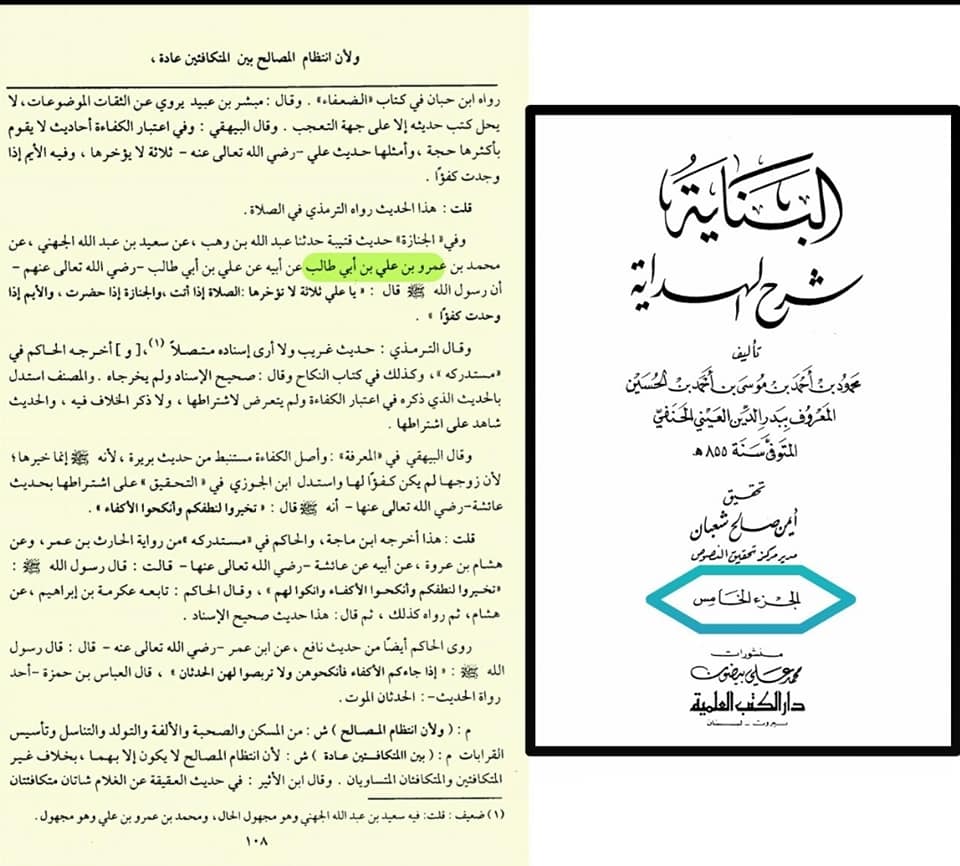 ولأن انتظام المصالح بين المتكافئين عادة ،
رواه ابن حبان في كتاب «الضعفاء» . وقال : مبشر بن عبيد يروي عن الثقات الموضوعات، لا
يحل كتب حديثه إلا على جهة التعجب . وقال البيهقي : وفي اعتبار الكفاءة أحاديث لا يقوم
بأكثرها حجة ، وأمثلها حديث علي -رضي الله تعالى عنه - ثلاثة لا يؤخرها ، وفيه الأيم إذا
وجدت كفؤًا .
قلت : هذا الحديث رواه الترمذي في الصلاة .
وفي« الجنازة» حديث قتيبة حدثنا عبد الله بن وهب ، عن سعيد بن عبد الله الجهني ، عن
محمد بن عمرو بن علي بن أبي طالب عن أبيه عن علي بن أبي طالب -رضي الله تعالى عنهم -
أن رسول الله ﷺ قال : « يا علي ثلاثة لا تؤخرها :الصلاة إذا أتت ،والجنازة إذا حضرت ، والأيم إذا
وجدت كفؤًا » .
وقال الترمذي : حديث غريب ولا أرى إسناده متصلاً (١)،[ و ] أخرجه الحاكم في
«مستدركه »، وكذلك في كتاب النكاح وقال : صحيح الإسناد ولم يخرجاه . والمصنف استدل
بالحديث الذي ذكره في اعتبار الكفاءة ولم يتعرض لاشتراطها ، ولا ذكر الخلاف فيه ، والحديث
شاهد على اشتراطها .
وقال البيهقي في «المعرفة» : وأصل الكفاءة مستنبط من حديث بريرة ، لأنه ﷺ إنما خيرها؛
لأن زوجها لم يكن كفؤًا لها واستدل ابن الجوزي في «التحقيق »على اشتراطها بحديث
عائشة-رضي الله تعالى عنها - أنه ﷺ قال : « تخيروا لنطفكم وأنكحوا الأكفاء » .
قلت : هذا أخرجه ابن ماجة، والحاكم في «مستدركه »من رواية الحارث بن عمر، وعن
هشام بن عروة ، عن أبيه عن عائشة -رضي الله تعالى عنها - قالت : قال رسول الله ﷺ :
«تخيروا لنطفكم وأنكحوا الأكفاء وانكوا لهم » ، وقال الحاكم : تابعه عكرمة بن إبراهيم، عن
هشام، ثم رواه كذلك ، ثم قال : هذا حديث صحيح الإسناد .
روى الحاكم أيضًا من حديث نافع ، عن ابن عمر -رضي الله تعالى عنه - قال : قال رسول
الله ﷺ : « إذا جاءكم الأكفاء فأنكحوهن ولا تربصوا لهن الحدثان » ، قال العباس بن حمزة -أحد
رواة الحديث-: الحدثان الموت .
م : ( ولأن انتظام المصالح ) ش : من المسكن والصحبة والألفة والتولد والتناسل وتأسيس
القرابات م : ( بين االمتكافئين عادة ) ش : لأن انتظام المصالح لا يكون إلا بهما ، بخلاف غير
المتكافئين والمتكافئتان المتساويان . وقال ابن الأثير : في حديث العقيقة عن الغلام شاتان متكافئتان
(١) ضعيف : قلت: فيه سعيد بن عبد الله الجهني وهو مجهول الحال ، ومحمد بن عمرو بن علي وهو مجهول .
١٠٨
البناية
شرح الهداية
تأليف
محمود بن أحمد بن موسى بن أحمد بن الحسين
المعروف ببدر الدين العيني الحنفي
المتوفى سنة ٨٥٥ هـ
تحقيق
أيمن صالح شعبان
مدير مركز تحقيق النصوص
الجزء الخامس
منشورات
محمد علي بيضون
دار الكتب العلمية
بيروت - لبنان